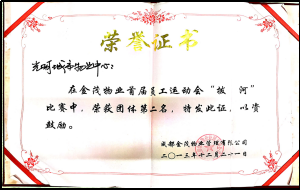 荣誉证书
物业中心：
在金茂物业首届员工运动会“拔 河”
比赛中，荣获团体第二名，特发此证，以资
鼓励。
成都金茂物业管理有限公司
二〇一三年十二月二十一日